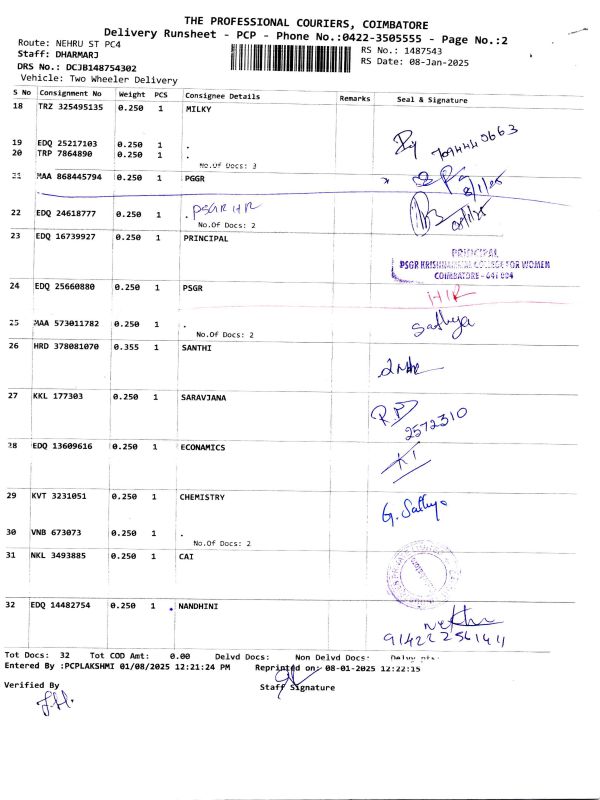 THE PROFESSIONAL COURIERS, COIMBATORE
Delivery Runsheet - PCP - Phone No.:0422-3505555 - Page No.:2
Route: NEHRU ST PC4
RS No.: 1487543
Staff: DHARMARJ
RS Date: 08-Jan-2025
DRS No.: DCJB148754302
Vehicle: Two Wheeler Delivery
S No Consignment No Weight PCS Consignee Details Remarks Seal & Signature
18 TRZ 325495135 0.250 1 MILKY
19 EDQ 25217103 0.250 1 .
20 TRP 7864890 0.250 1 .
No.Of Docs: 3
21 MAA 868445794 0.250 1 PGGR
8/1/25
22 EDQ 24618777 0.250 1 . PSGR HR
No.Of Docs: 2
23 EDQ 16739927 0.250 1 PRINCIPAL
PRINCIPAL
PSGR KRISHNAMMAL COLLEGE FOR WOMEN
COIMBATORE - 641 004
24 EDQ 25660880 0.250 1 PSGR
HR
25 MAA 573011782 0.250 1 . Sathya
No.Of Docs: 2
26 HRD 378081070 0.355 1 SANTHI
27 KKL 177303 0.250 1 SARAVJANA
R.P
2572310
28 EDQ 13609616 0.250 1 ECONAMICS
29 KVT 3231051 0.250 1 CHEMISTRY
G. Sathya
30 VNB 673073 0.250 1 .
No.Of Docs: 2
31 NKL 3493885 0.250 1 CAI
32 EDQ 14482754 0.250 1 NANDHINI
Tot Docs: 32 Tot COD Amt: 0.00 Delvd Docs: Non Delvd Docs: Delvy pts:
Entered By :PCPLAKSHMI 01/08/2025 12:21:24 PM Reprinted on: 08-01-2025 12:22:15
Verified By
Staff Signature